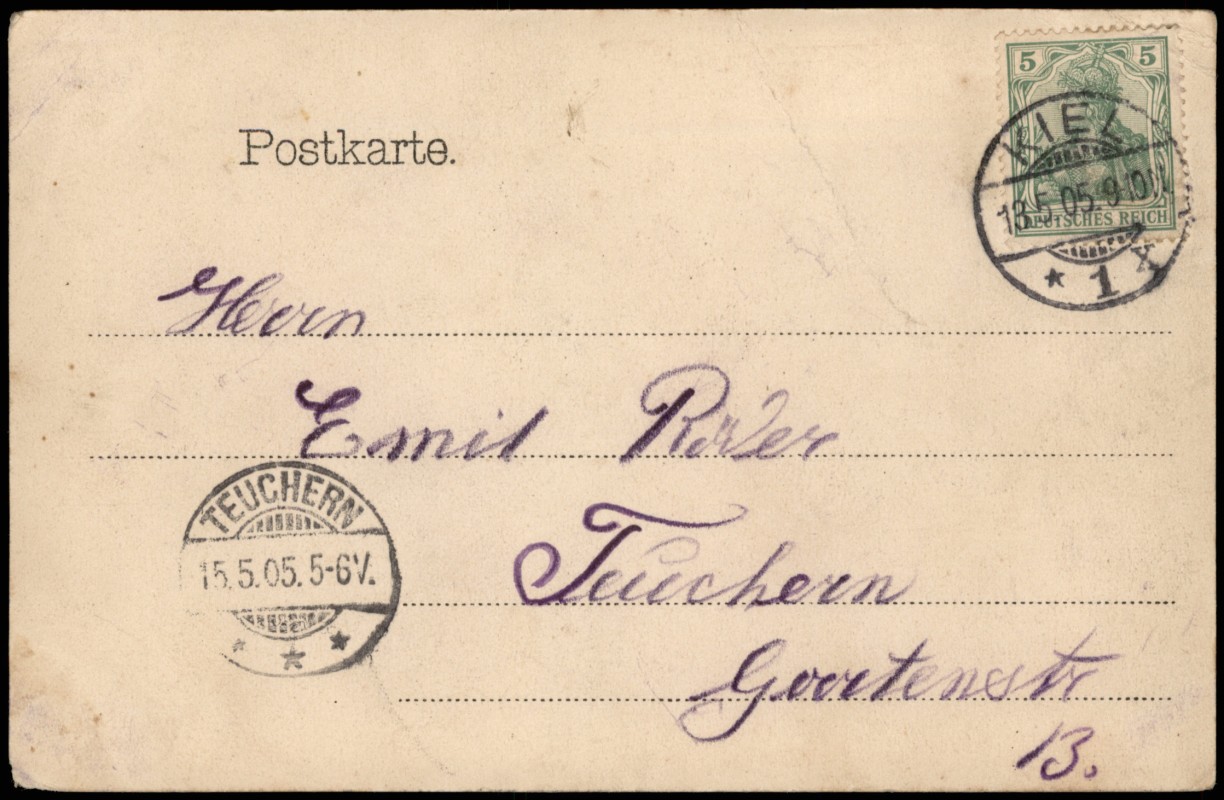 5 5
DEUTSCHES REICH
KIEL
13.5.05.9-10V.
* 1 X
Postkarte.
Herrn
Emil
TEUCHERN
15.5.05.5-6V.
* * *
Teuchern
Gartenstr
13.